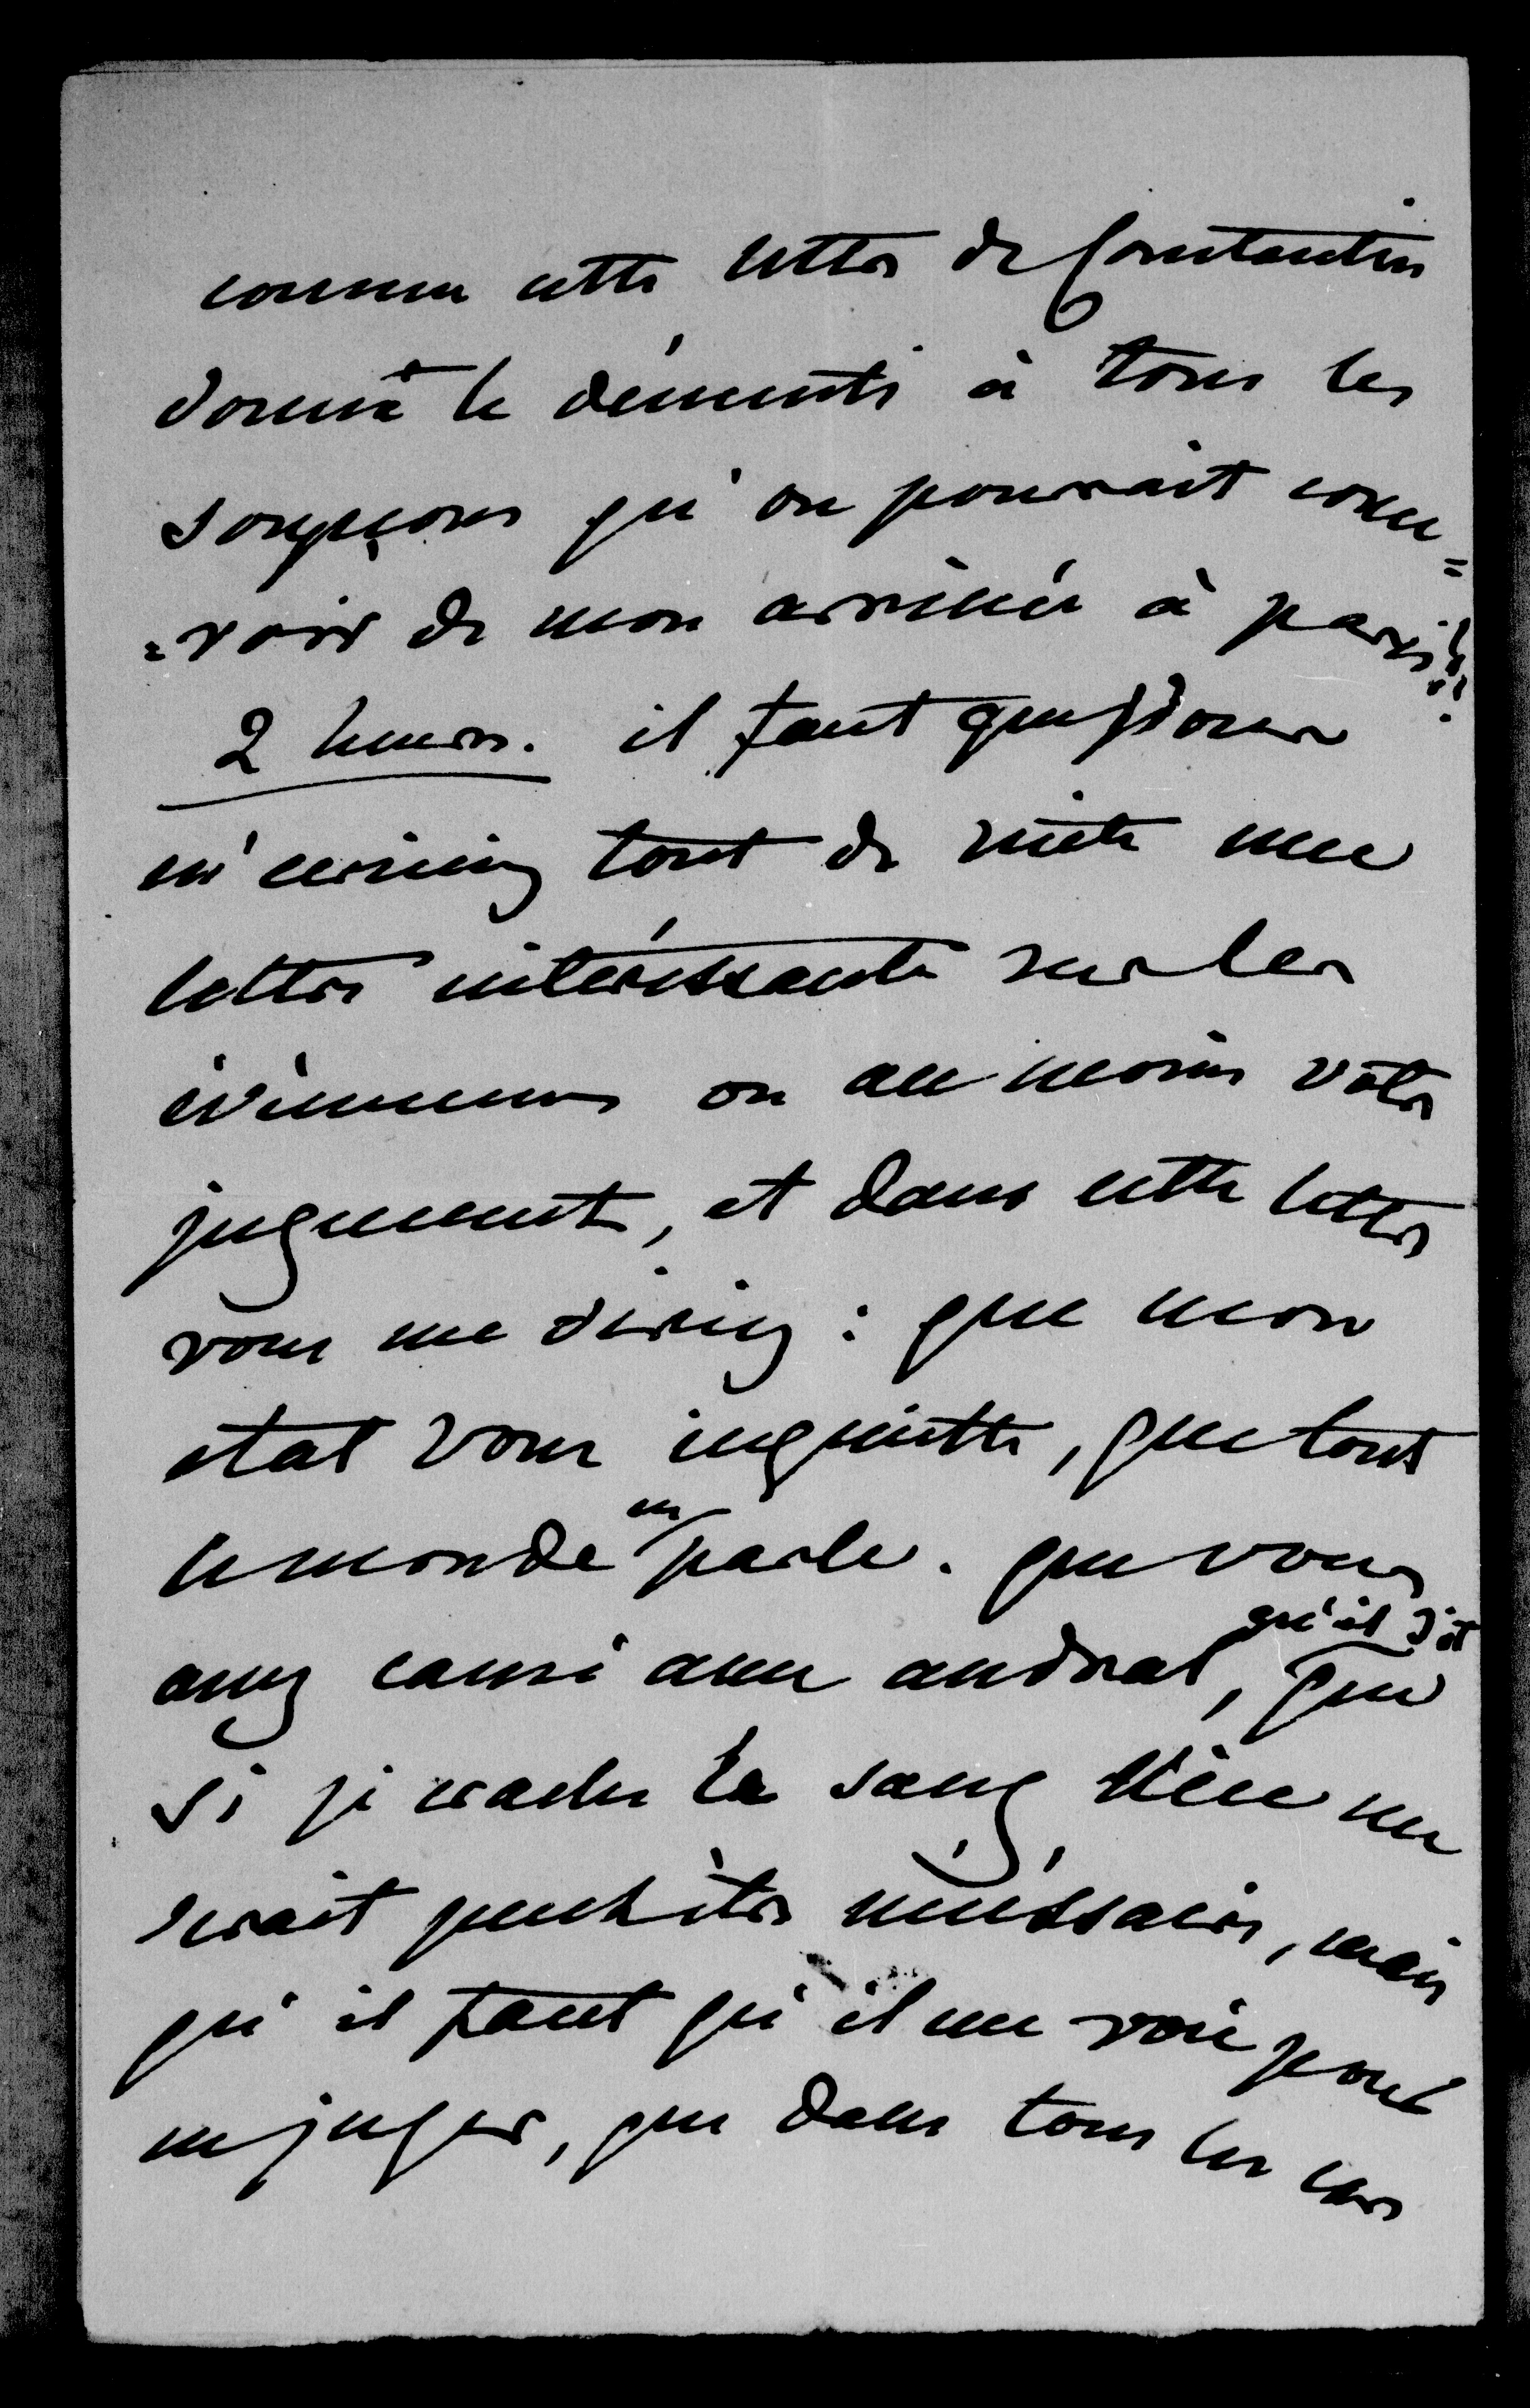 comme cette lettre de Constantin
donne le démenti à tous les
soupçons qu'on pourrait conce=
=voir de mon arrivée à paris!!!
2 heures. il faut que vous
m'écriviez tout de suite une
lettre intéressante sur les
évènemens ou au moins votre
jugement, et dans cette lettre
vous me diriez : que mon
etat vous inquiette, que tout
le monde en parle. que vous
avez causé avec andral, qu'il dit que
si je crache le sang Nice me
serait peut être nécéssaire, mais
qu'il faut qu'il me voie pour
me juger, que dans tous les cas